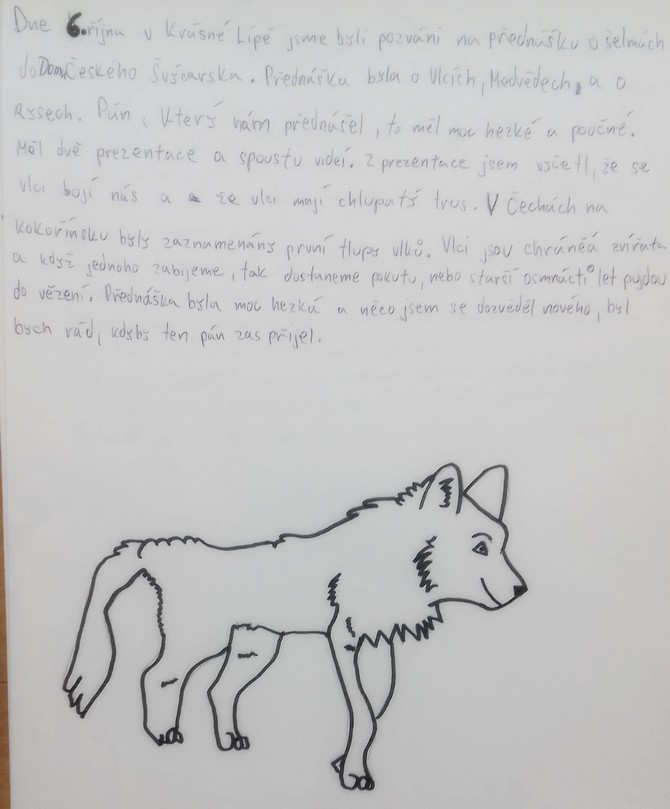 Dne 6. října v Krásné Lípě jsme byli pozváni na přednášku o šelmách
do Domu Českého Švýcarska. Přednáška byla o Vlcích, Medvědech, a o
Rysech. Pán, který nám přednášel, to měl moc hezké a poučné.
Měl dvě prezentace a spoustu videí. Z prezentace jsem vyčetl, že se
vlci bojí nás a že vlci mají chlupatý trus. V Čechách na
kokořínsku byly zaznamenány první tlupy vlků. Vlci jsou chráněá zvířata
a když jednoho zabijeme, tak dostaneme pokutu, nebo starší osmnácti let pujdou
do vězení. Přednáška byla moc hezká a něco jsem se dozvěděl nového, byl
bych rád, kdyby ten pán zas přijel.